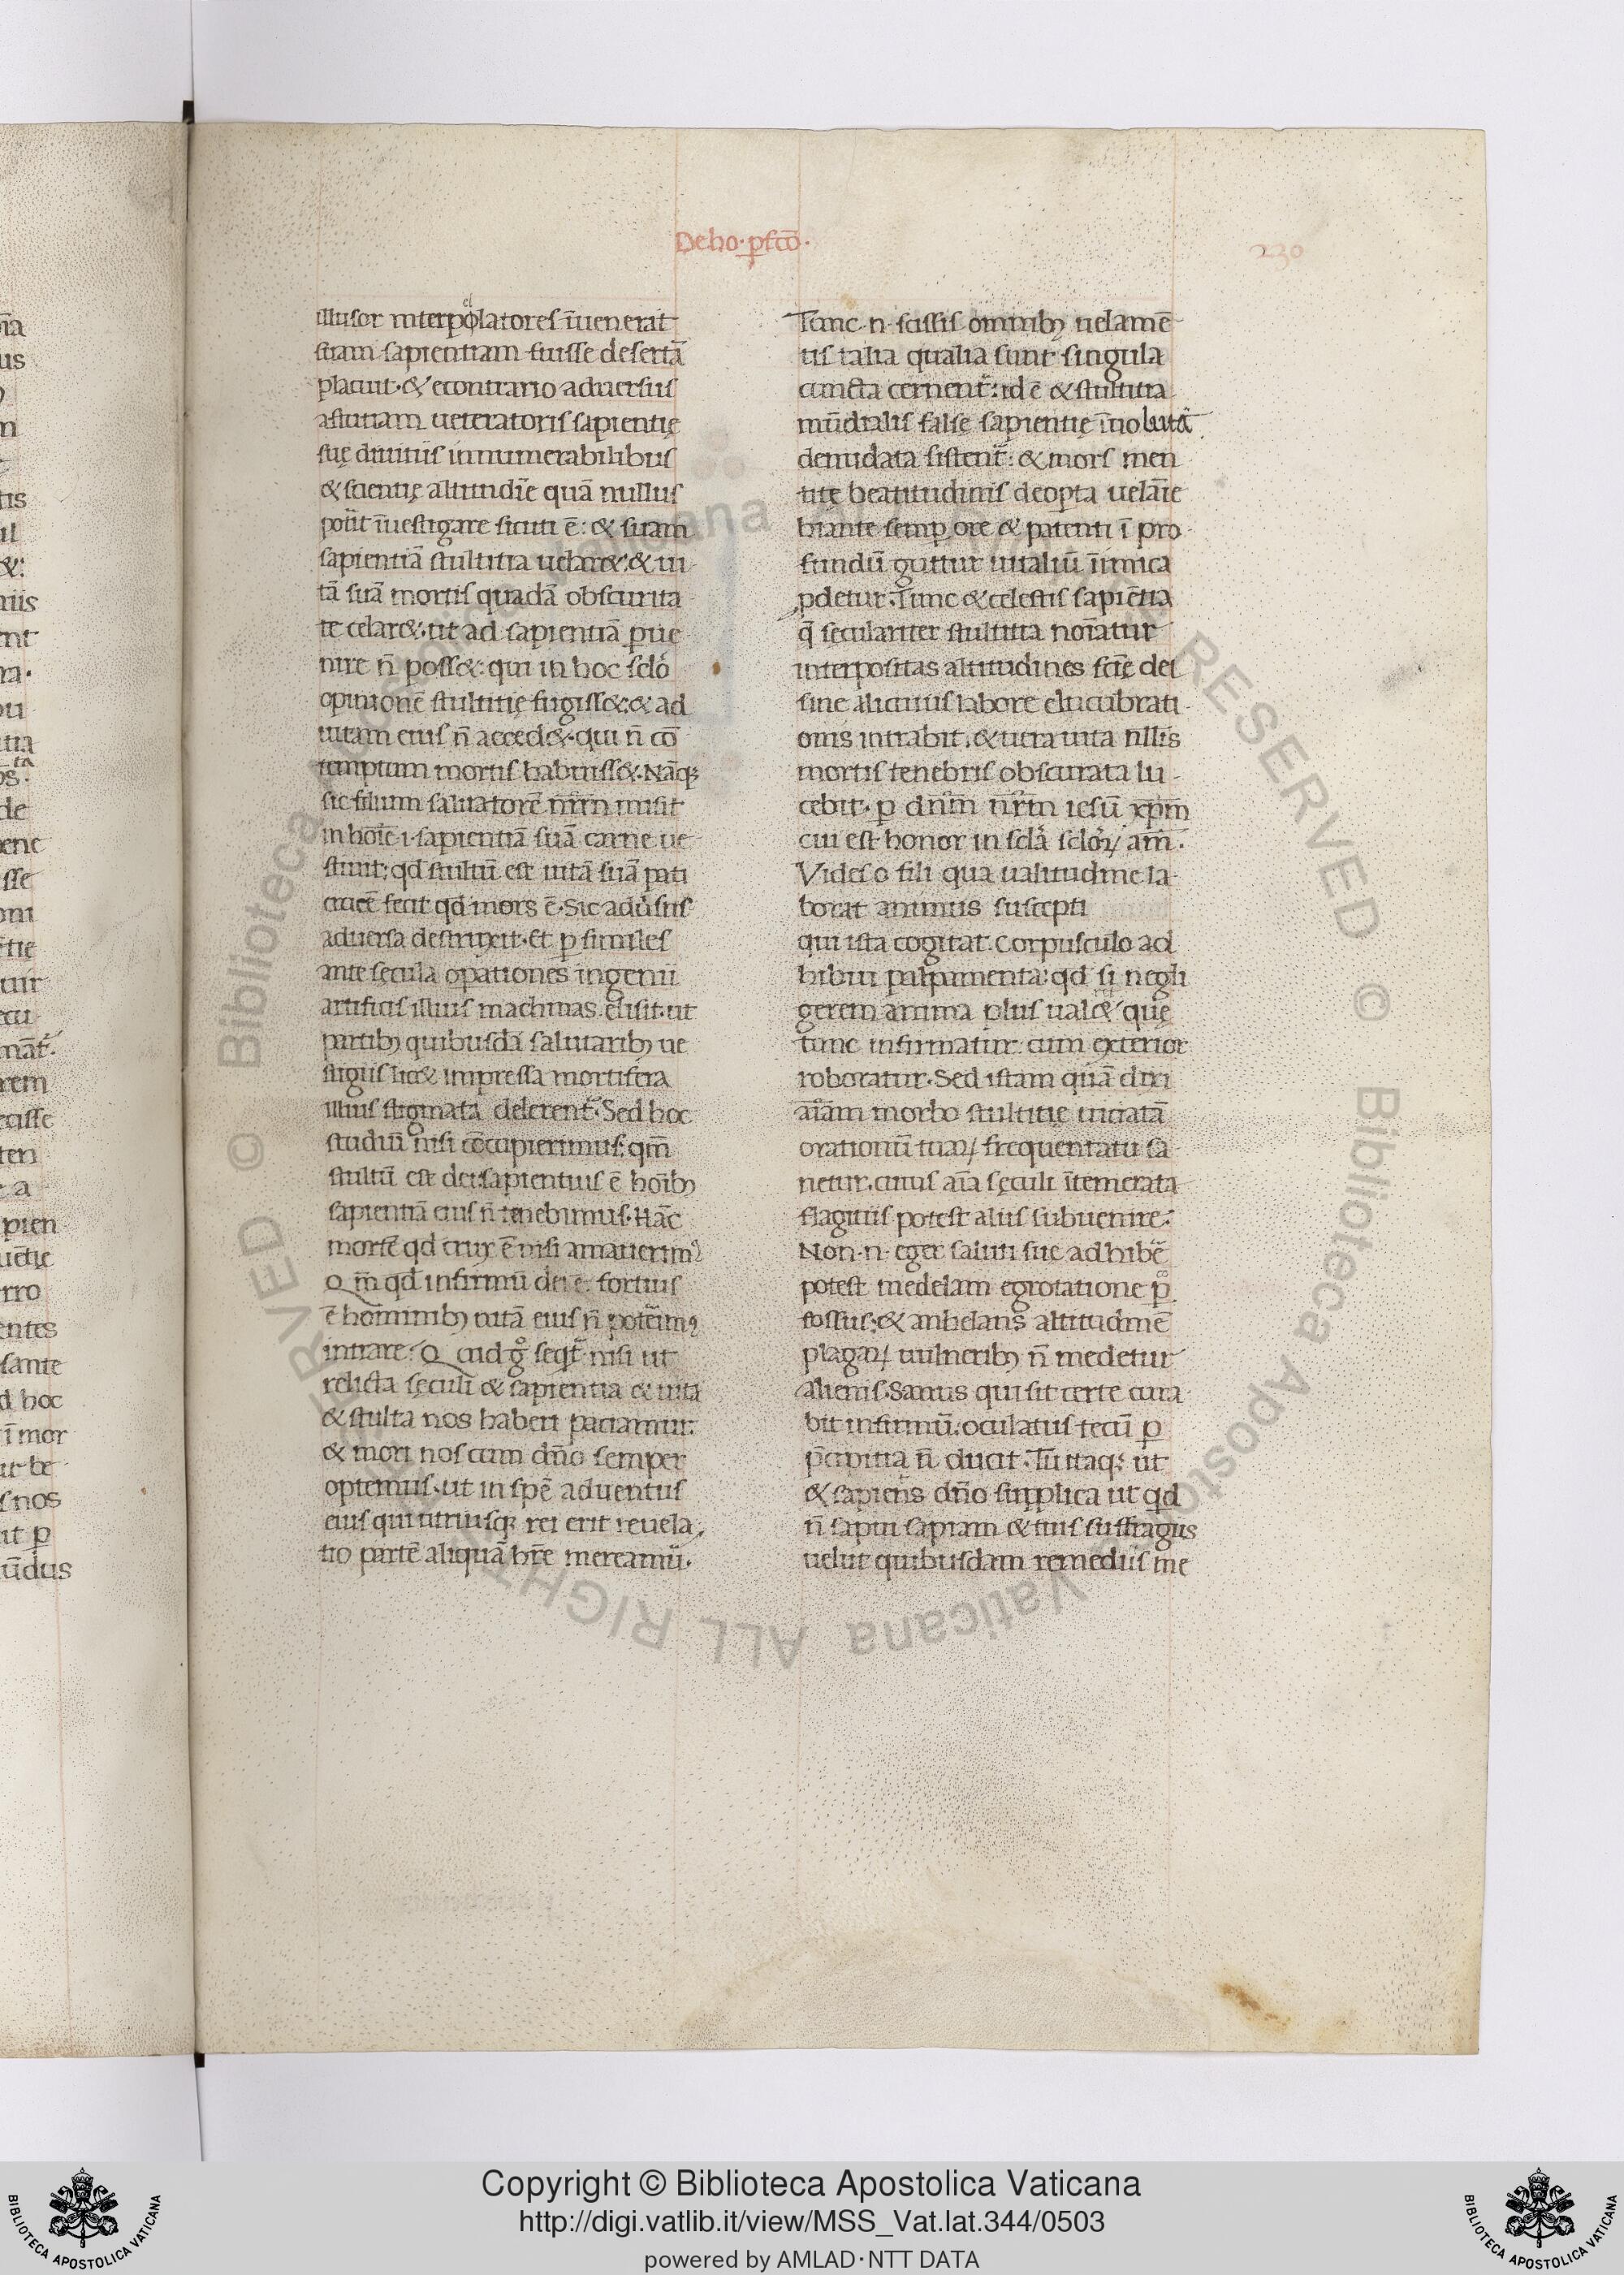 De ho. ꝑfcō.
230
illusor interpolatores īuenerat
suam sapientiam fuisse desertā
placuit. & econtrario aduersus
astutiam ueteratoris sapientię
suę diuitiis innumerabilibus
& scientię altitudīe quā nullus
īuestigare sicuti ē: & suam
sapientiā stultitia uelar&: & ui
tā suā mortis quadā obscurita
te celar&. ut ad sapientiā ꝑue
nire n̄ poss&. qui in hoc sc̄lo
opinionē stultitię fugiss&: & ad
uitam eius n̄ acced&. qui n̄ cō
temptum mortis habuiss&. Nāq;
sic filium saluatorē nr̄m misit
in hoīe .i. sapientiā suā carne ue
stiuit: qd̄ stultū est uitā suā pati
crucē fecit qd̄ mors ē. Sic adūsus
aduersa destruxit. Et ꝑ similes
ante sęcula oꝑationes ingenii
artificis illius machinas elisit. ut
partibꝫ quibusdā salutaribꝫ ue
stigiis lic& impressa mortifera
illius stigmata delerent̄. Sed hoc
studiū nisi cōcupierimus: qm̄
stultū est dei: sapientius ē hoībꝫ
sapientiā eius n̄ tenebimus. Hāc
mortē qd̄ crux ē nisi amauerimꝰ
Qm̄ qd̄ infirmū dei ē. fortius
ē hominibꝫ uitā eius n̄ poterimꝰ
intrare. Quid gͦ seqt̄ nisi ut
relicta sęculi & sapientia & uita
& stulta nos haberi patiamur:
& mori nos cum dn̄o semper
optemus. ut in spē aduentus
eius qui utriusq; rei erit reuela
tio partē aliquā hr̄e mereamū.
Tunc .n. scissis omnibꝫ uelamē
tis talia qualia sunt singula
cuncta cernent̄: id ē & stultitia
mūdialis false sapientię īuoluta
denudata sistent̄: & mors men
titę beatitudinis deopta uelāīe
hiante semꝑ ore & patenti ī pro
fundū guttur uitaliū īimica
ꝓdetur. Tunc & celestis sapiētia
q̄ sęculariter stultitia noīatur
interpositas altitudines scīę dei
sine alicuius labore elucubrati
onis intrabit. & uera uita nllīs
mortis tenebris obscurata lu
cebit. ꝑ dn̄m nr̄m iesū xp̄m
cui est honor in sc̄la sc̄loꝝ am̄.
Vides o fili qua ualitudine la
borat animus suscepti
qui ista cogitat. Corpusculo ad
hibui palpamenta: qd̄ si negli
gerem anima plus ual& quę
tunc infirmatur: cum exterior
roboratur. Sed istam quā dixi
aīam morbo stultitię uiciatā
orationū tuaꝝ frequentatu sa
netur. cuius aīa sęculi ītemerata
flagitiis potest aliis subuenire.
Non .n. eger saluti suę adhibē
potest medelam egrotatione ꝑ
fossus: & anhelans altitudinē
plagaꝝ uulneribꝫ n̄ medetur
alienis. Sanus qui sit certe cura
bit infirmū. oculatus tecū ꝑ
p̄cipitia n̄ ducit. Tu itaq; ut
& sapiens dn̄o supplica ut qd̄
n̄ sapui sapiam & tuis suffragiis
uelut quibusdam remediis me
Copyright © Biblioteca Apostolica Vaticana
http://digi.vatlib.it/view/MSS_Vat.lat.344/0503
powered by AMLAD·NTT DATA